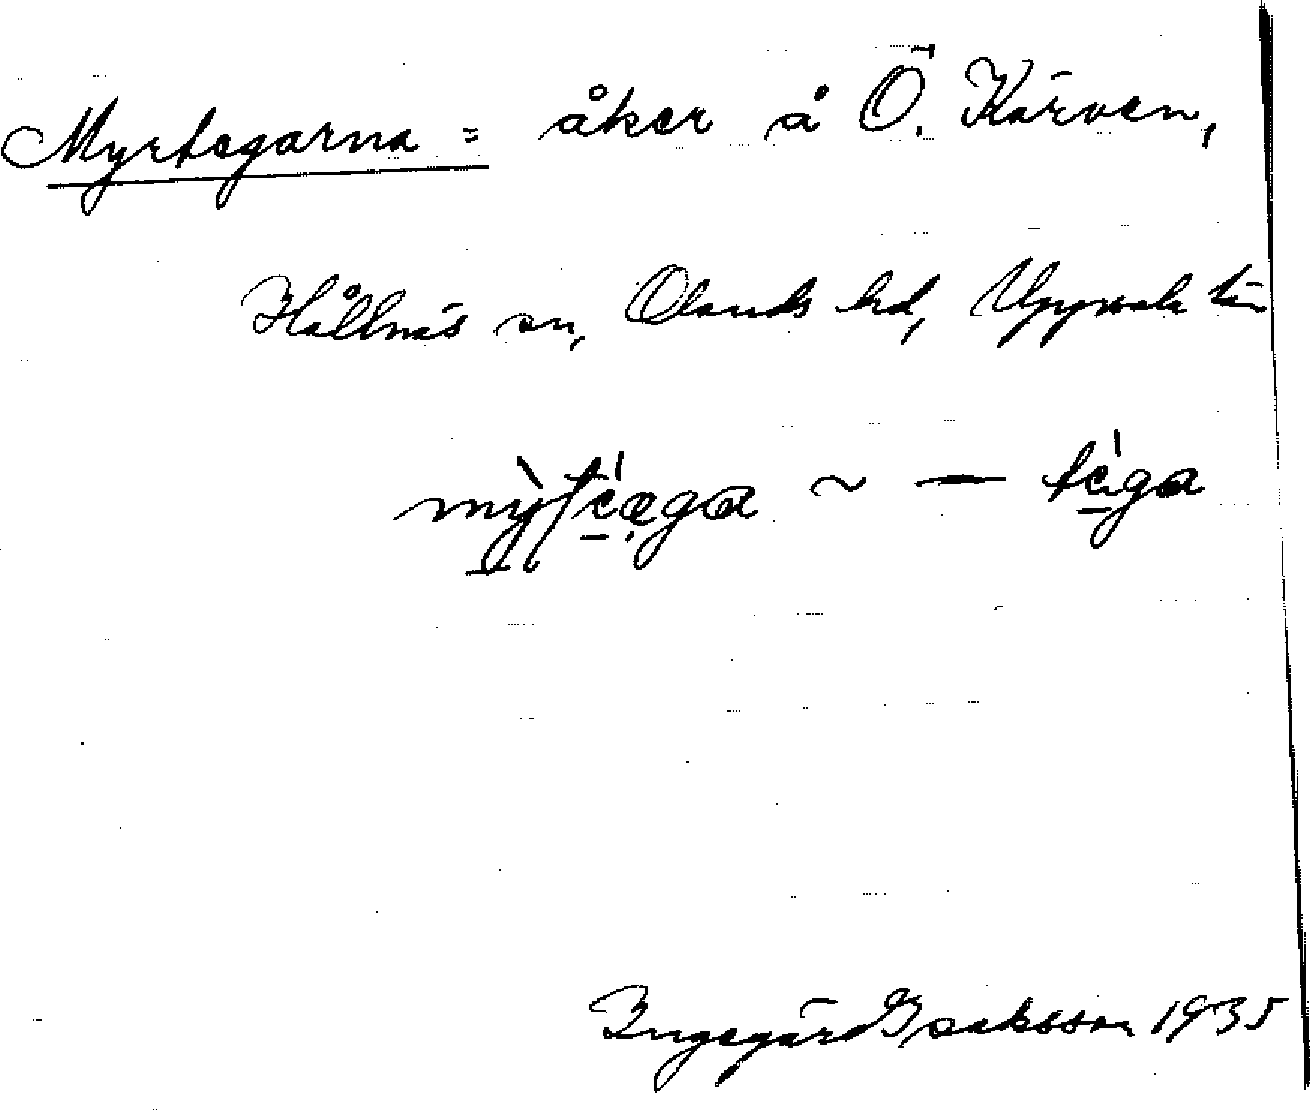 Myrtegarna = åker å Ö. Kärven,
Hållnäs sn, Olands hd, Uppsala län
~ — téga
Ingegärd Isaksson 1935